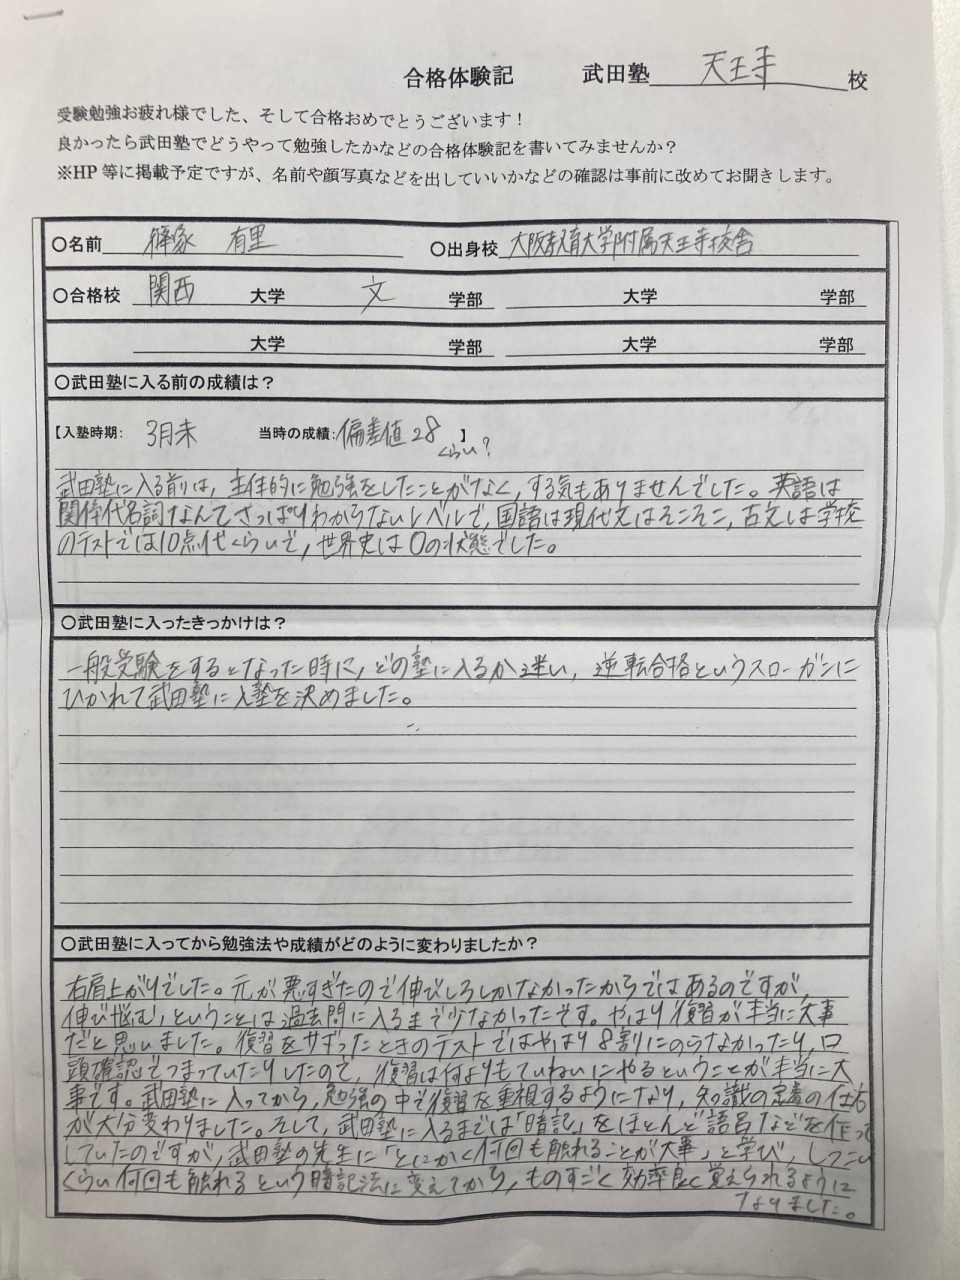 合格体験記 武田塾 天王寺 校
受験勉強お疲れ様でした、そして合格おめでとうございます！
良かったら武田塾でどうやって勉強したかなどの合格体験記を書いてみませんか？
※HP 等に掲載予定ですが、名前や顔写真などを出していいかなどの確認は事前に改めてお聞きします。
○名前 篠塚 有里 ○出身校 大阪教育大学附属天王寺校舎
○合格校 関西 大学 文 学部 大学 学部
大学 学部 大学 学部
○武田塾に入る前の成績は？
【入塾時期： 3月末 当時の成績：偏差値28 】
くらい？
武田塾に入る前は、主体的に勉強をしたことがなく、する気もありませんでした。英語は
関係代名詞なんてさっぱりわからないレベルで、国語は現代文はそこそこ、古文は学校
のテストでは10点代くらいで、世界史は0の状態でした。
○武田塾に入ったきっかけは？
一般受験をするとなった時に、どの塾に入るか迷い、逆転合格というスローガンに
ひかれて武田塾に入塾を決めました。
○武田塾に入ってから勉強法や成績がどのように変わりましたか？
右肩上がりでした。元が悪すぎたので伸びしろしかなかったからではあるのですが、
「伸び悩む」ということは過去問に入るまで少なかったです。やはり復習が本当に大事
だと思いました。復習をサボったときのテストではやはり8割にのらなかったり、口
頭確認でつまっていたりしたので、復習は何よりもていねいにやるということが本当に大
事です。武田塾に入ってから、勉強の中で復習を重視するようになり、知識の定着の仕方
が大分変わりました。そして、武田塾に入るまでは「暗記」をほとんど語呂などを作って
していたのですが、武田塾の先生に「とにかく何回も触れることが大事」と学び、しつこい
くらい何回も触れるという暗記法に変えてから、ものすごく効率良く覚えられるように
なりました。